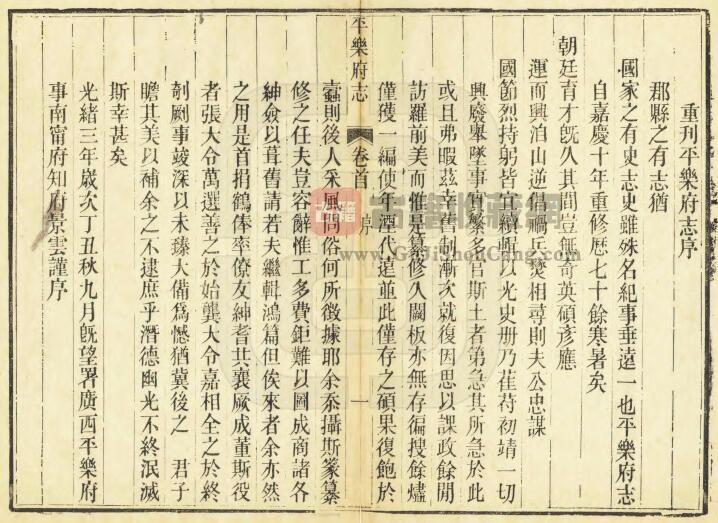 重刊平樂府志序
郡縣之有志猶
國家之有史志史雖殊名紀事垂遠一也平樂府志
自嘉慶十年重修歷七十餘寒暑矣
朝廷育才既久其間豈無奇英碩彥應
運而興洎乎逆倡禍兵燹相尋則夫公忠謀
國節烈持躬皆宜續輯以光史册乃萑苻初靖一切
興廢舉墜事實繁多官斯土者第急其所急於此
或且弗暇茲幸舊制漸次就復因思以課政餘閒
訪羅前美而惟是纂修久闕板亦無存徧搜餘燼
僅獲一編使年湮代遠並此僅存之碩果復飽於
蠹則後人采風問俗何所徵據耶余忝攝斯篆纂
修之任夫豈容辭惟工多費鉅難以圖成商諸各
紳僉以葺舊請若夫繼輯鴻篇但俟來者余亦然
之用是首捐鶴俸率僚友紳耆共襄厥成董斯役
者張大令萬選善之於始龔大令嘉相全之於終
剞劂事竣深以未臻大備爲憾猶冀後之 君子
瞻其美以補余之不逮庶乎潛德幽光不終泯滅
斯幸甚矣
光緒三年歲次丁丑秋九月既望署廣西平樂府
事南甯府知府景雲謹序
平樂府志 卷首 序 一
古籍收藏網
www.GuJiShouCang.com